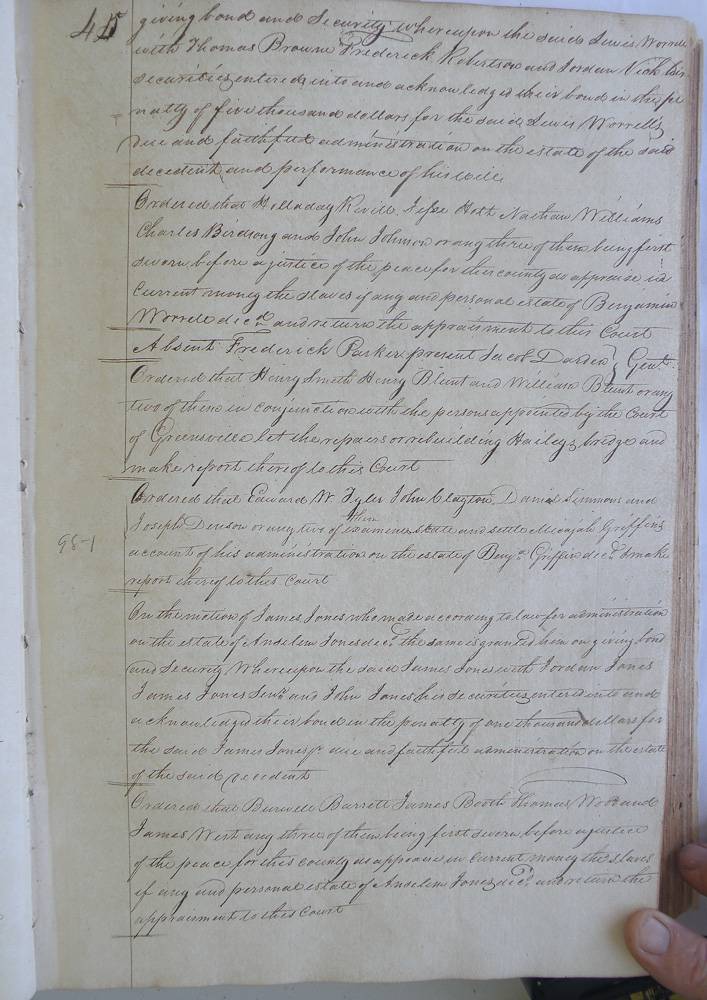 giving bond and Security whereupon the said Lewis Worrell
with Thomas Browne Frederick Robertson and Jordan Vick his
securities entered into and acknowledged their bond in the pe
nalty of five thousand dollars for the said Lewis Worrell's
due and faithful administration on the estate of the said
decedent and performance of his will
Ordered that Holladay Revill Jesse Holt Nathan Williams
Charles Birdsong and John Johnson or any three of them being first
sworn before a justice of the peace for this county do appraise in
Current money the slaves if any and personal estate of Benjamin
Worrell decd. and return the appraisment to this Court
Absent Frederick Parker present Jacob Darden } Gent.
Ordered that Henry Smith Henry Blunt and William Blunt or any
two of them in conjunction with the persons appointed by the Court
of Greensville let the repairs or rebuilding Hailey's bridge and
make report thereof to this Court
Ordered that Edward W. Tyler John Clayton, Daniel Simmons and
Joseph Denson or any two of them examine state and settle Micajah Griffin's
98-1
account of his administration on the estate of Benja. Griffin decd. & make
report thereof to this Court
On the motion of James Jones who made according to law for administration
on the estate of Anselem Jones decd. the same is granted him on giving bond
and Security Whereupon the said James Jones with Jordan Jones
James Jones Senr. and John Jones his securities entered into and
acknowledged their bond in the penalty of one thousand dollars for
the said James Jones jr. due and faithful administration on the estate
of the said decedent
Ordered that Burwell Barrett James Booth Thomas Wood and
James West any three of them being first sworn before a justice
of the peace for this county do appraise in Current money the slaves
if any and personal estate of Anselem Jones decd. and return the
appraisment to this Court